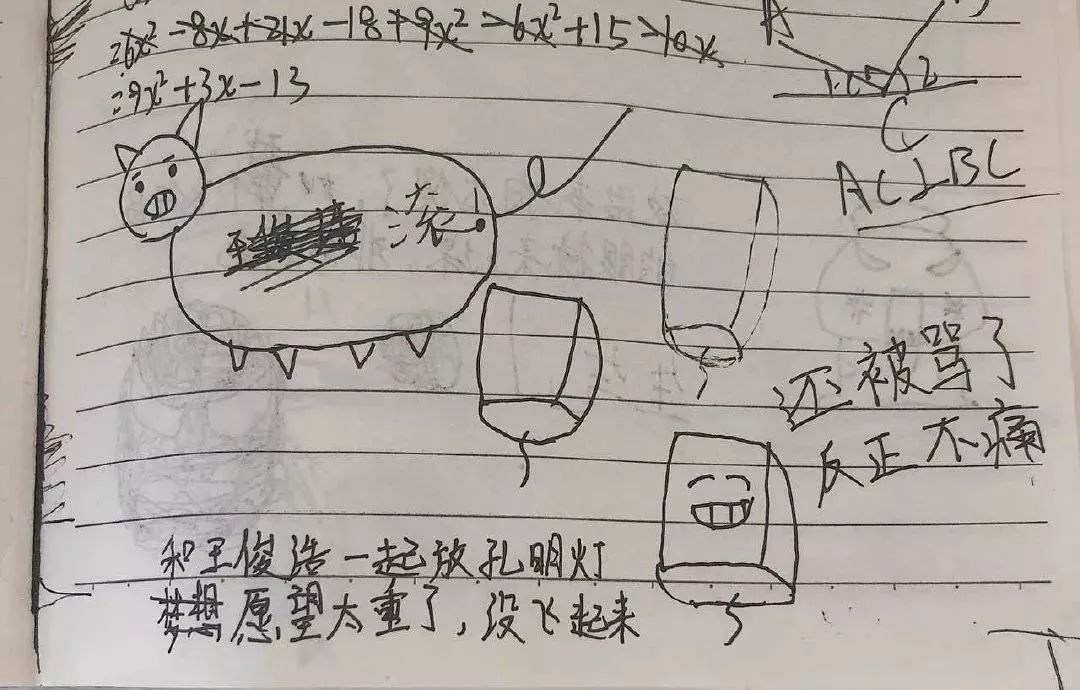 =6x²-8x+21x-18+9x²-6x²+15-10x
=9x²+3x-13
A
1 2
C
AC⊥BC
滚
还被骂了
反正不痛
和王俊浩一起放孔明灯
愿望太重了,没飞起来